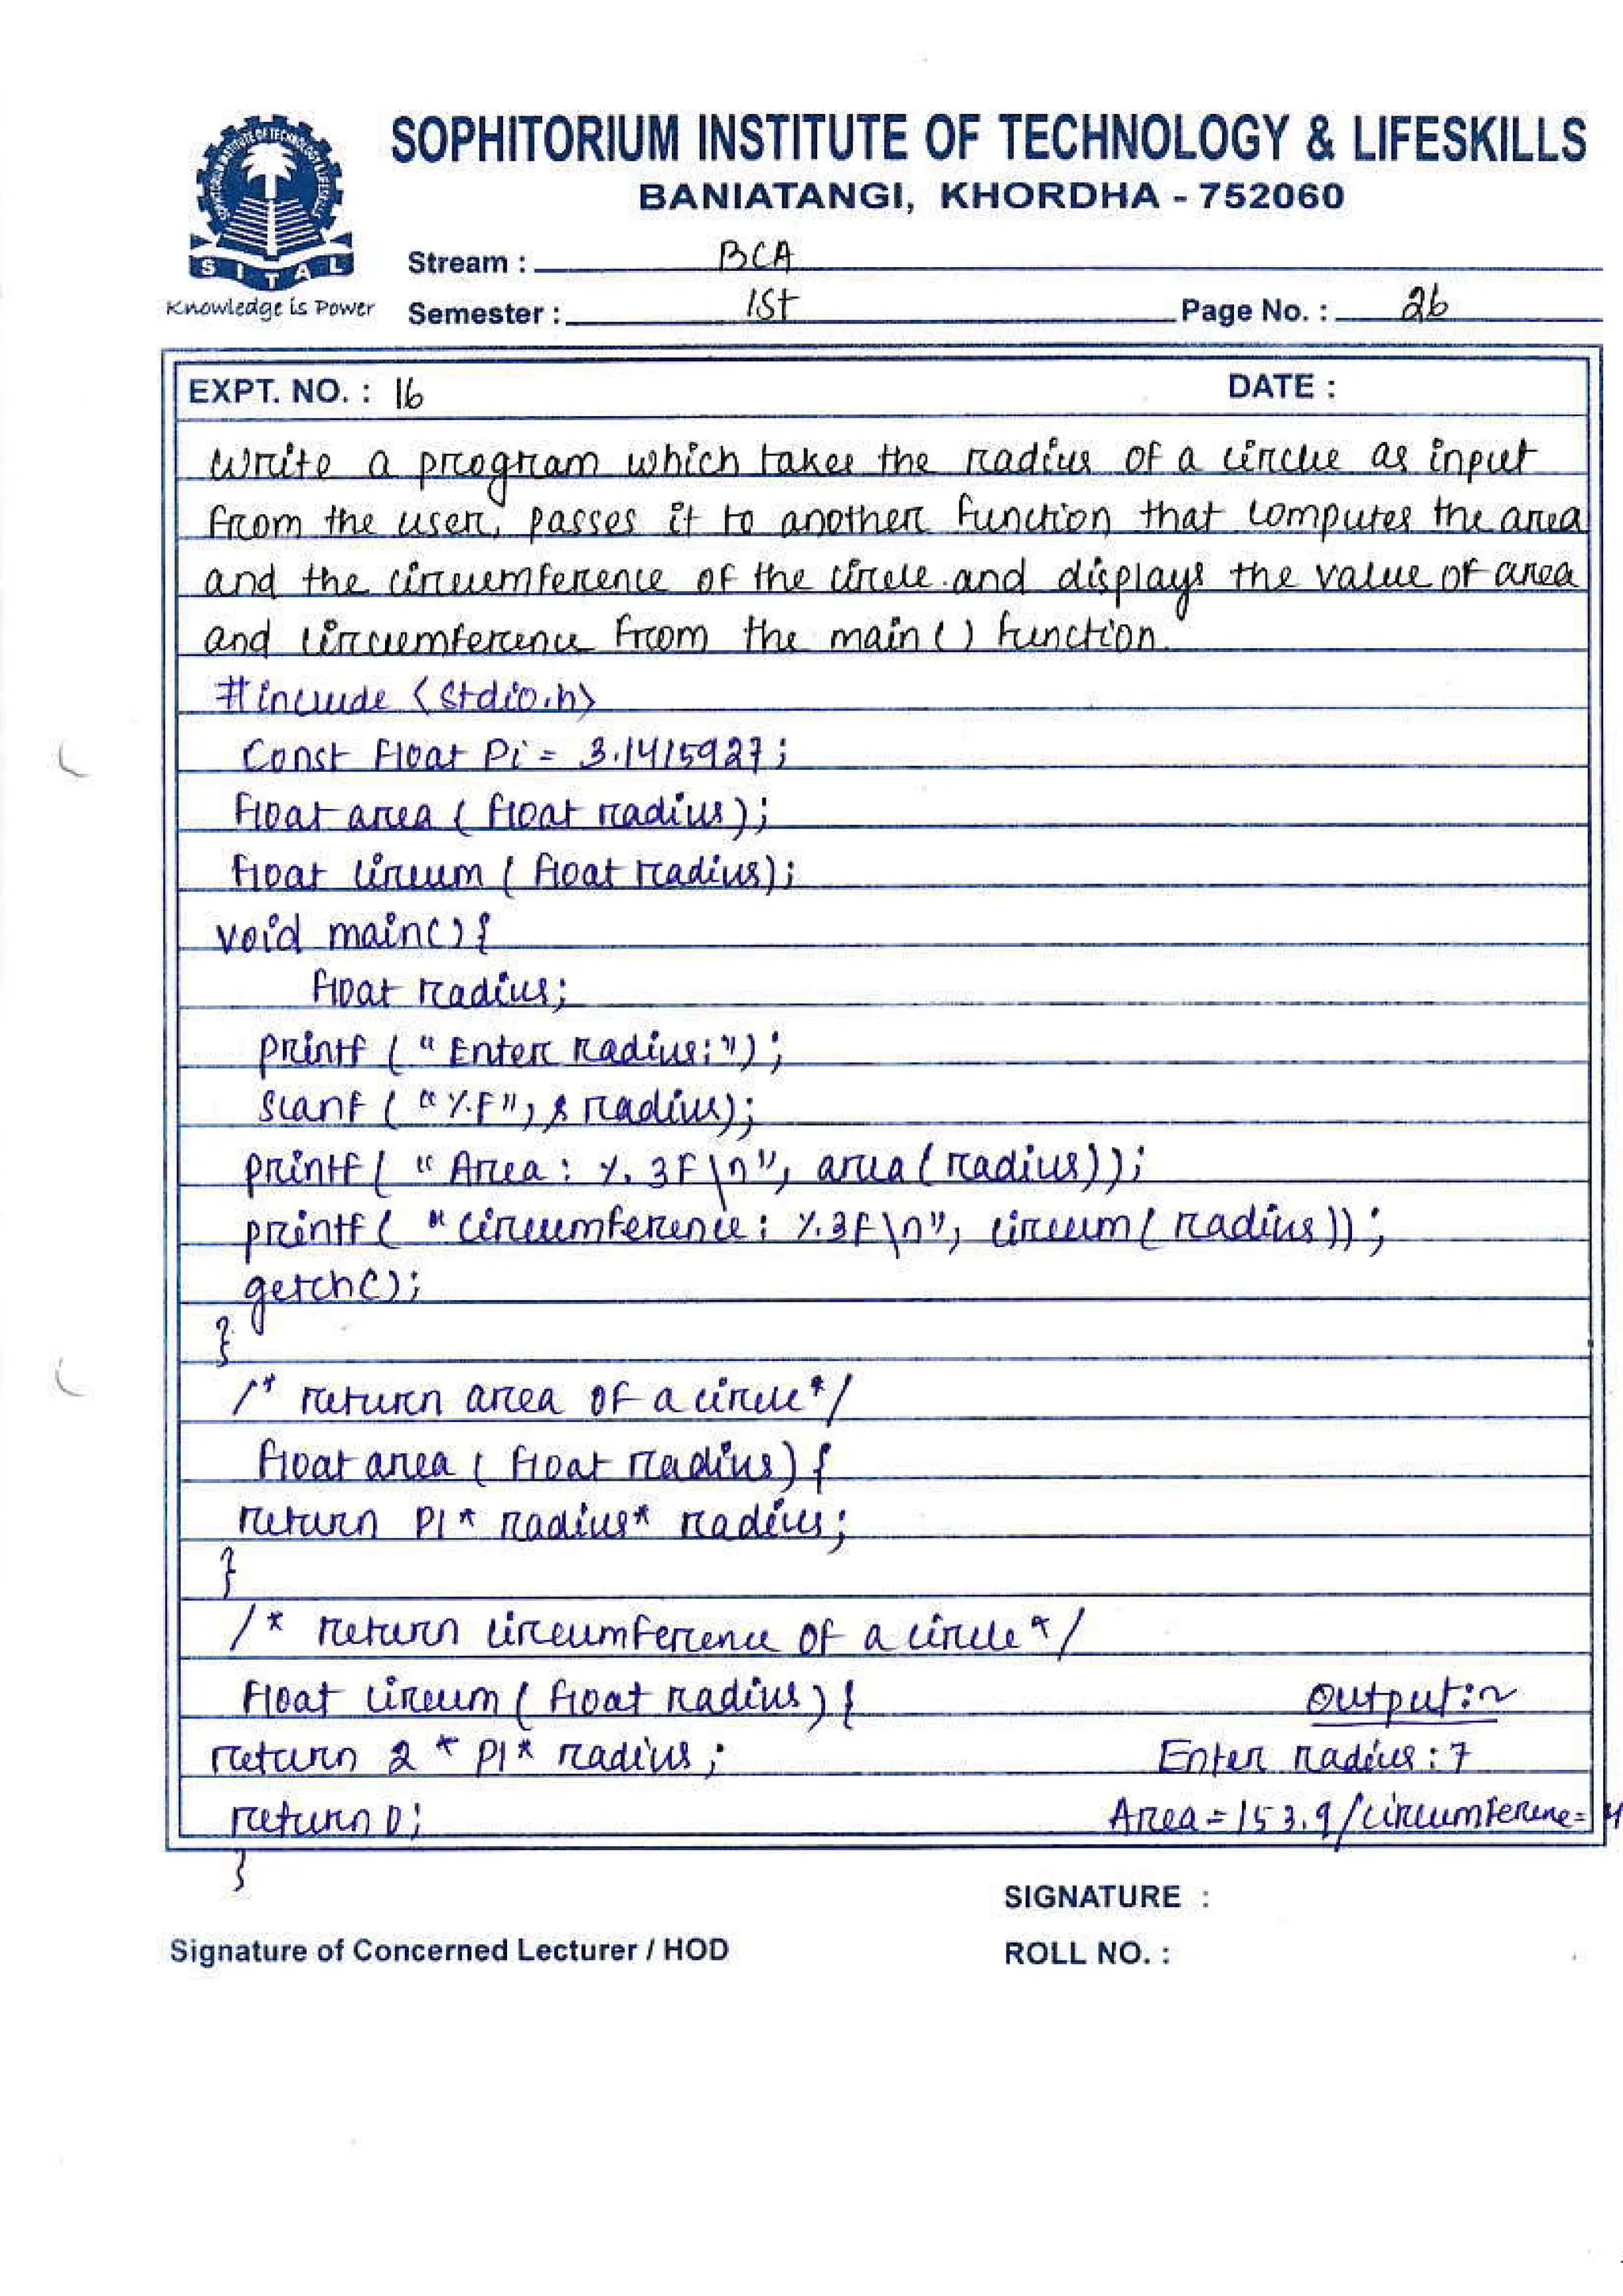 SOPHITORIUM INSTITUTE OF TECHNOLOGY & LIFESKILLS
BANIATANGI, KHORDHA - 752060
SITAL
Knowledge is Power
Stream : BCA
Semester : 1St Page No. : 26
EXPT. NO. : 16 DATE :
Write a program which takes the radius of a circle as input
from the user, passes it to another function that computes the area
and the circumference of the circle and displays the value of area
and circumference from the main() function.
#include <stdio.h>
Const Float Pi = 3.1415927;
float area ( float radius);
float circum ( float radius);
void main(){
float radius;
printf ( " Enter radius:");
scanf ( "%f", & radius);
printf( " Area: %. 3f\n", area(radius));
printf( "circumference: %.3f\n", circum( radius));
getch();
}
/* return area of a circle*/
float area ( float radius) {
return PI* radius* radius;
}
/* return circumference of a circle */
float circum ( float radius) {
return 2 * PI* radius;
return 0;
}
Output:~
Enter radius : 7
Area = 153.9/circumference=
SIGNATURE :
Signature of Concerned Lecturer / HOD
ROLL NO. :